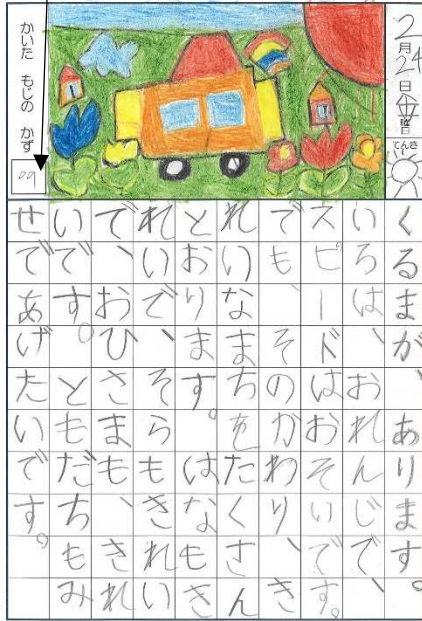 2月24日金曜日
てんき
かいた もじの かず 99
くるまが、あります。
いろは、おれんじで、
スピードはおそいです。
でも、そのかわり、き
れいなまちをたくさん
とおります。はなもき
れいで、そらもきれい
で、おひさまも、きれ
いです。ともだちもみ
せであげたいです。